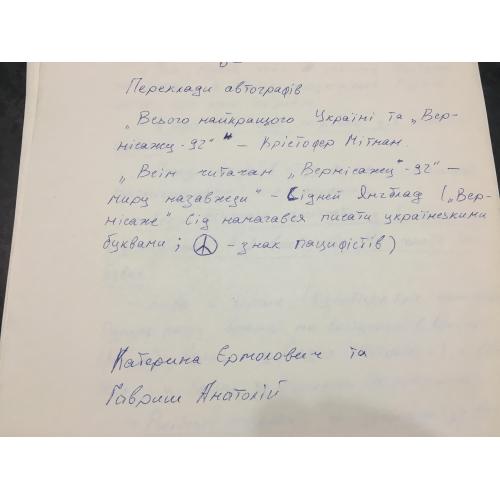 Переклади автографів
„Всього найкращого Україні та „Вер-
нісажу-92" " – Крістофер Мітман.
„Всім читачам „Вернісажу"-92" –
миру назавжди" – Сідней Янгблад („Вер-
нісаже" Сід намагався писати українськими
буквами; ☮ – знак пацифістів)
Катерина Єрмолович та
Гавриш Анатолій